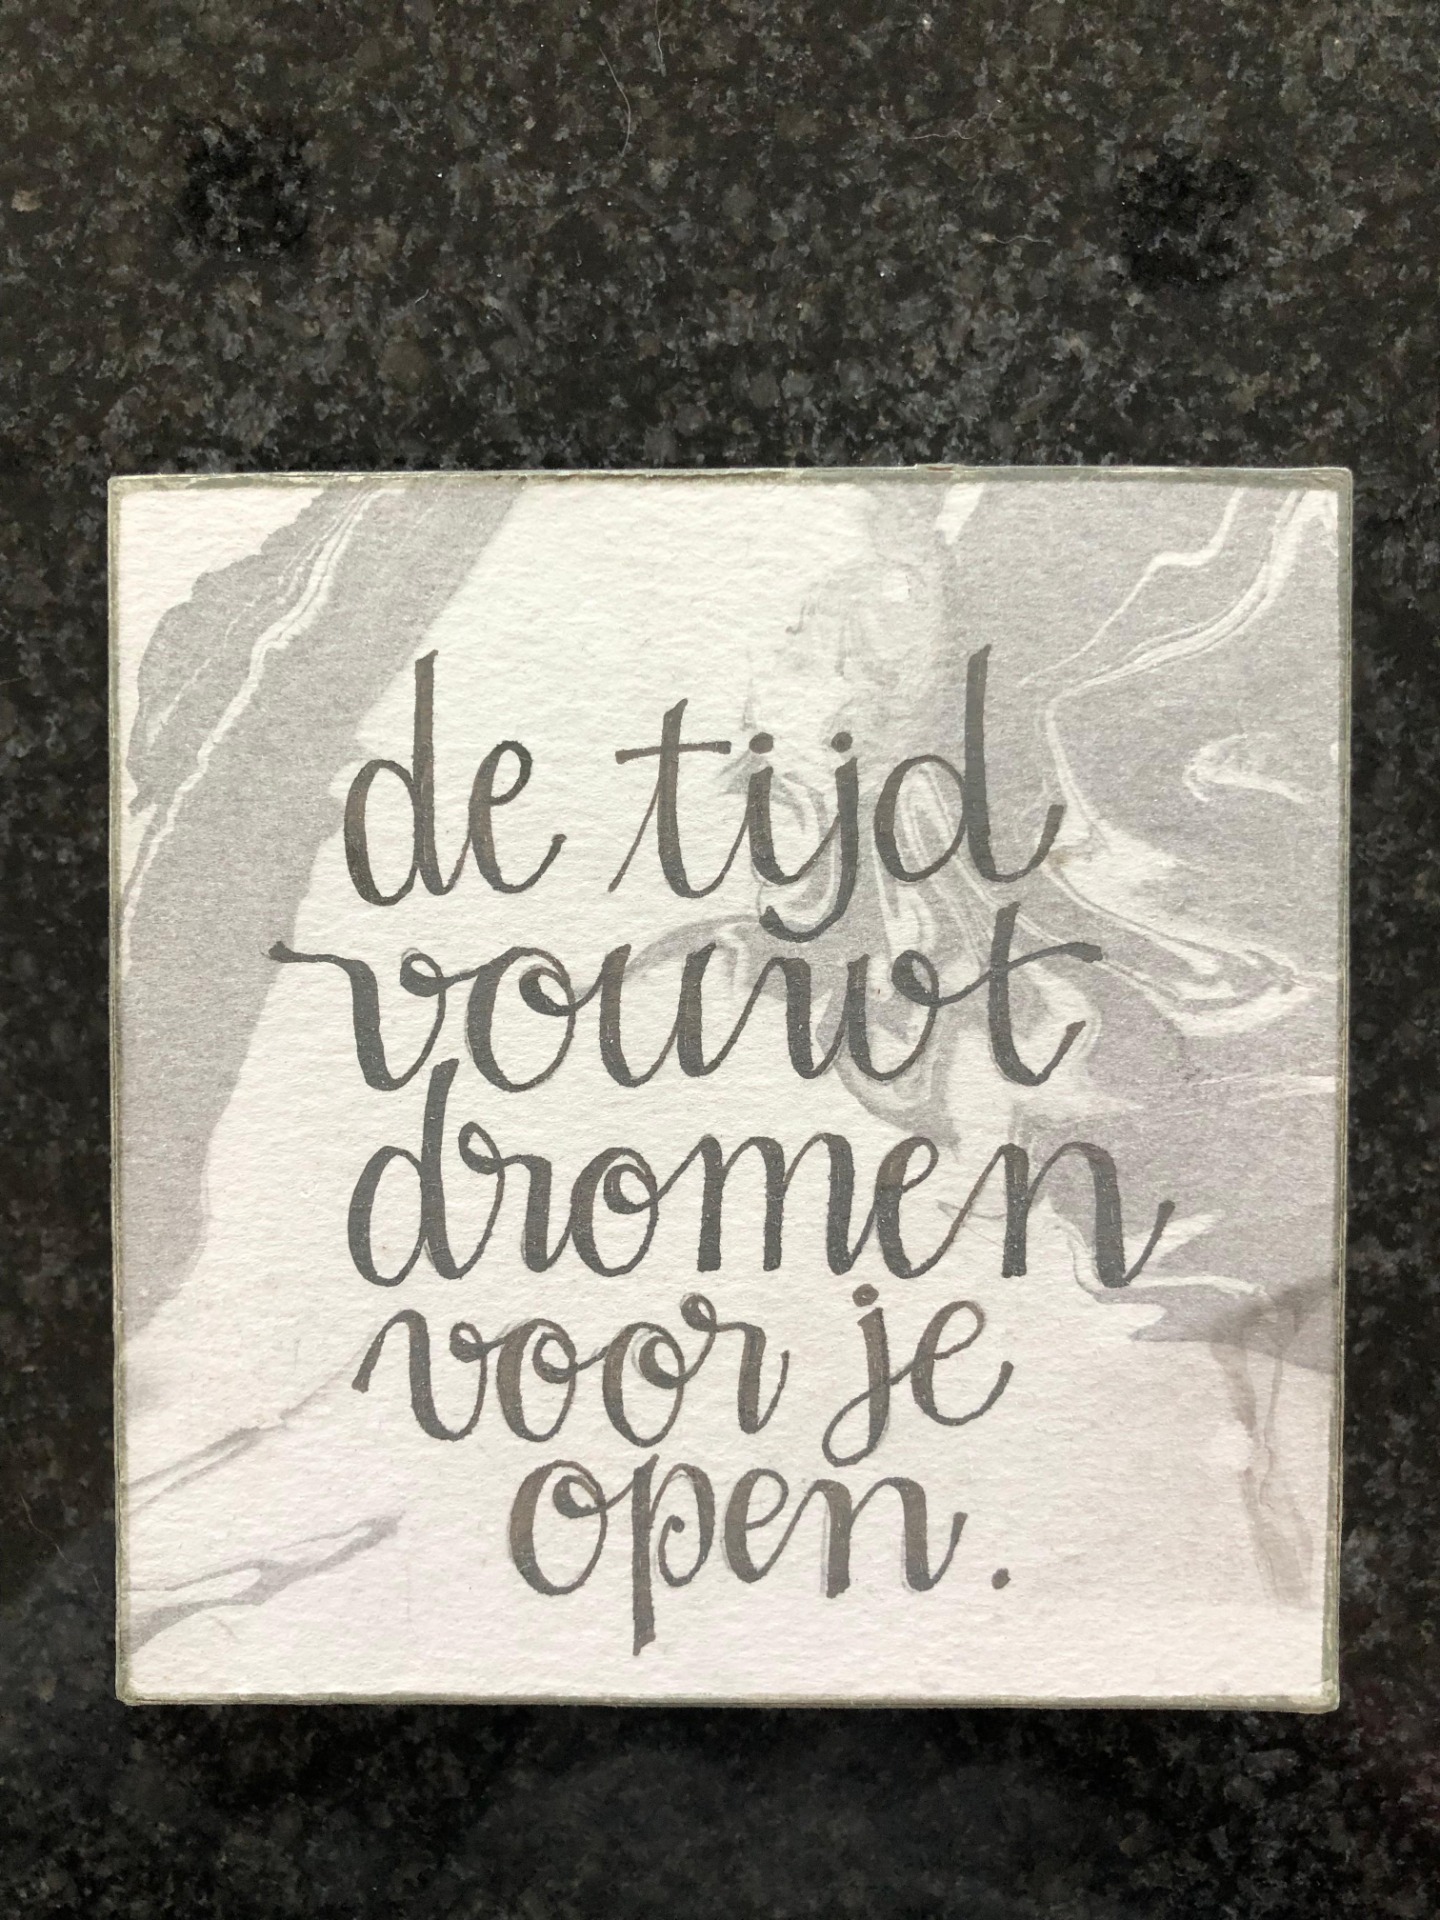 de tijd
vouwt
dromen
voor je
open.